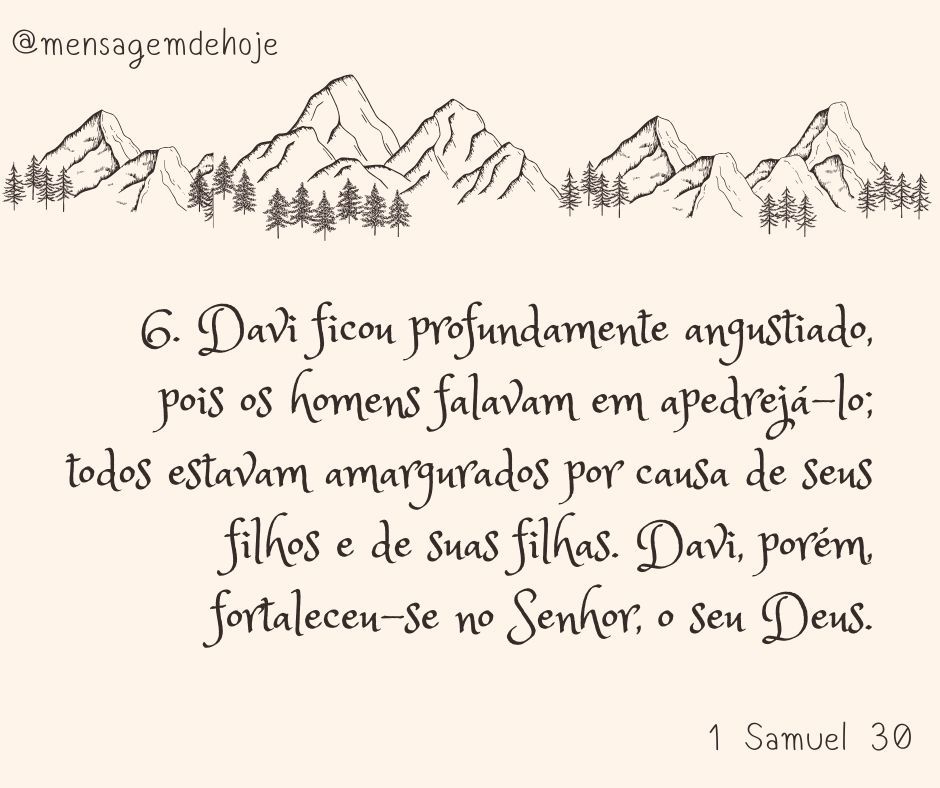 @mensagemdehoje
6. Davi ficou profundamente angustiado,
pois os homens falavam em apedrejá-lo;
todos estavam amargurados por causa de seus
filhos e de suas filhas. Davi, porém,
fortaleceu-se no Senhor, o seu Deus.
1 Samuel 30